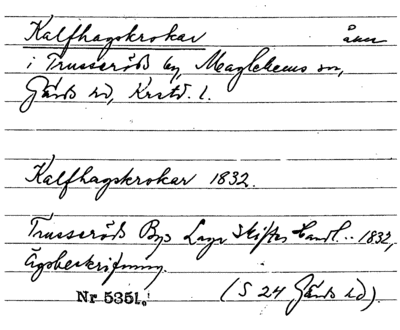 Kalfhagskrokar
i Trusseröds by, Maglehems sn,
Gärds hd, Krstd. l.
Kalfhagskrokar 1832.
Trusseröds Bys Laga Skiftes Handl... 1832,
Ägobeskrifning.
Nr 5351.
(S 24 Gärds hd).